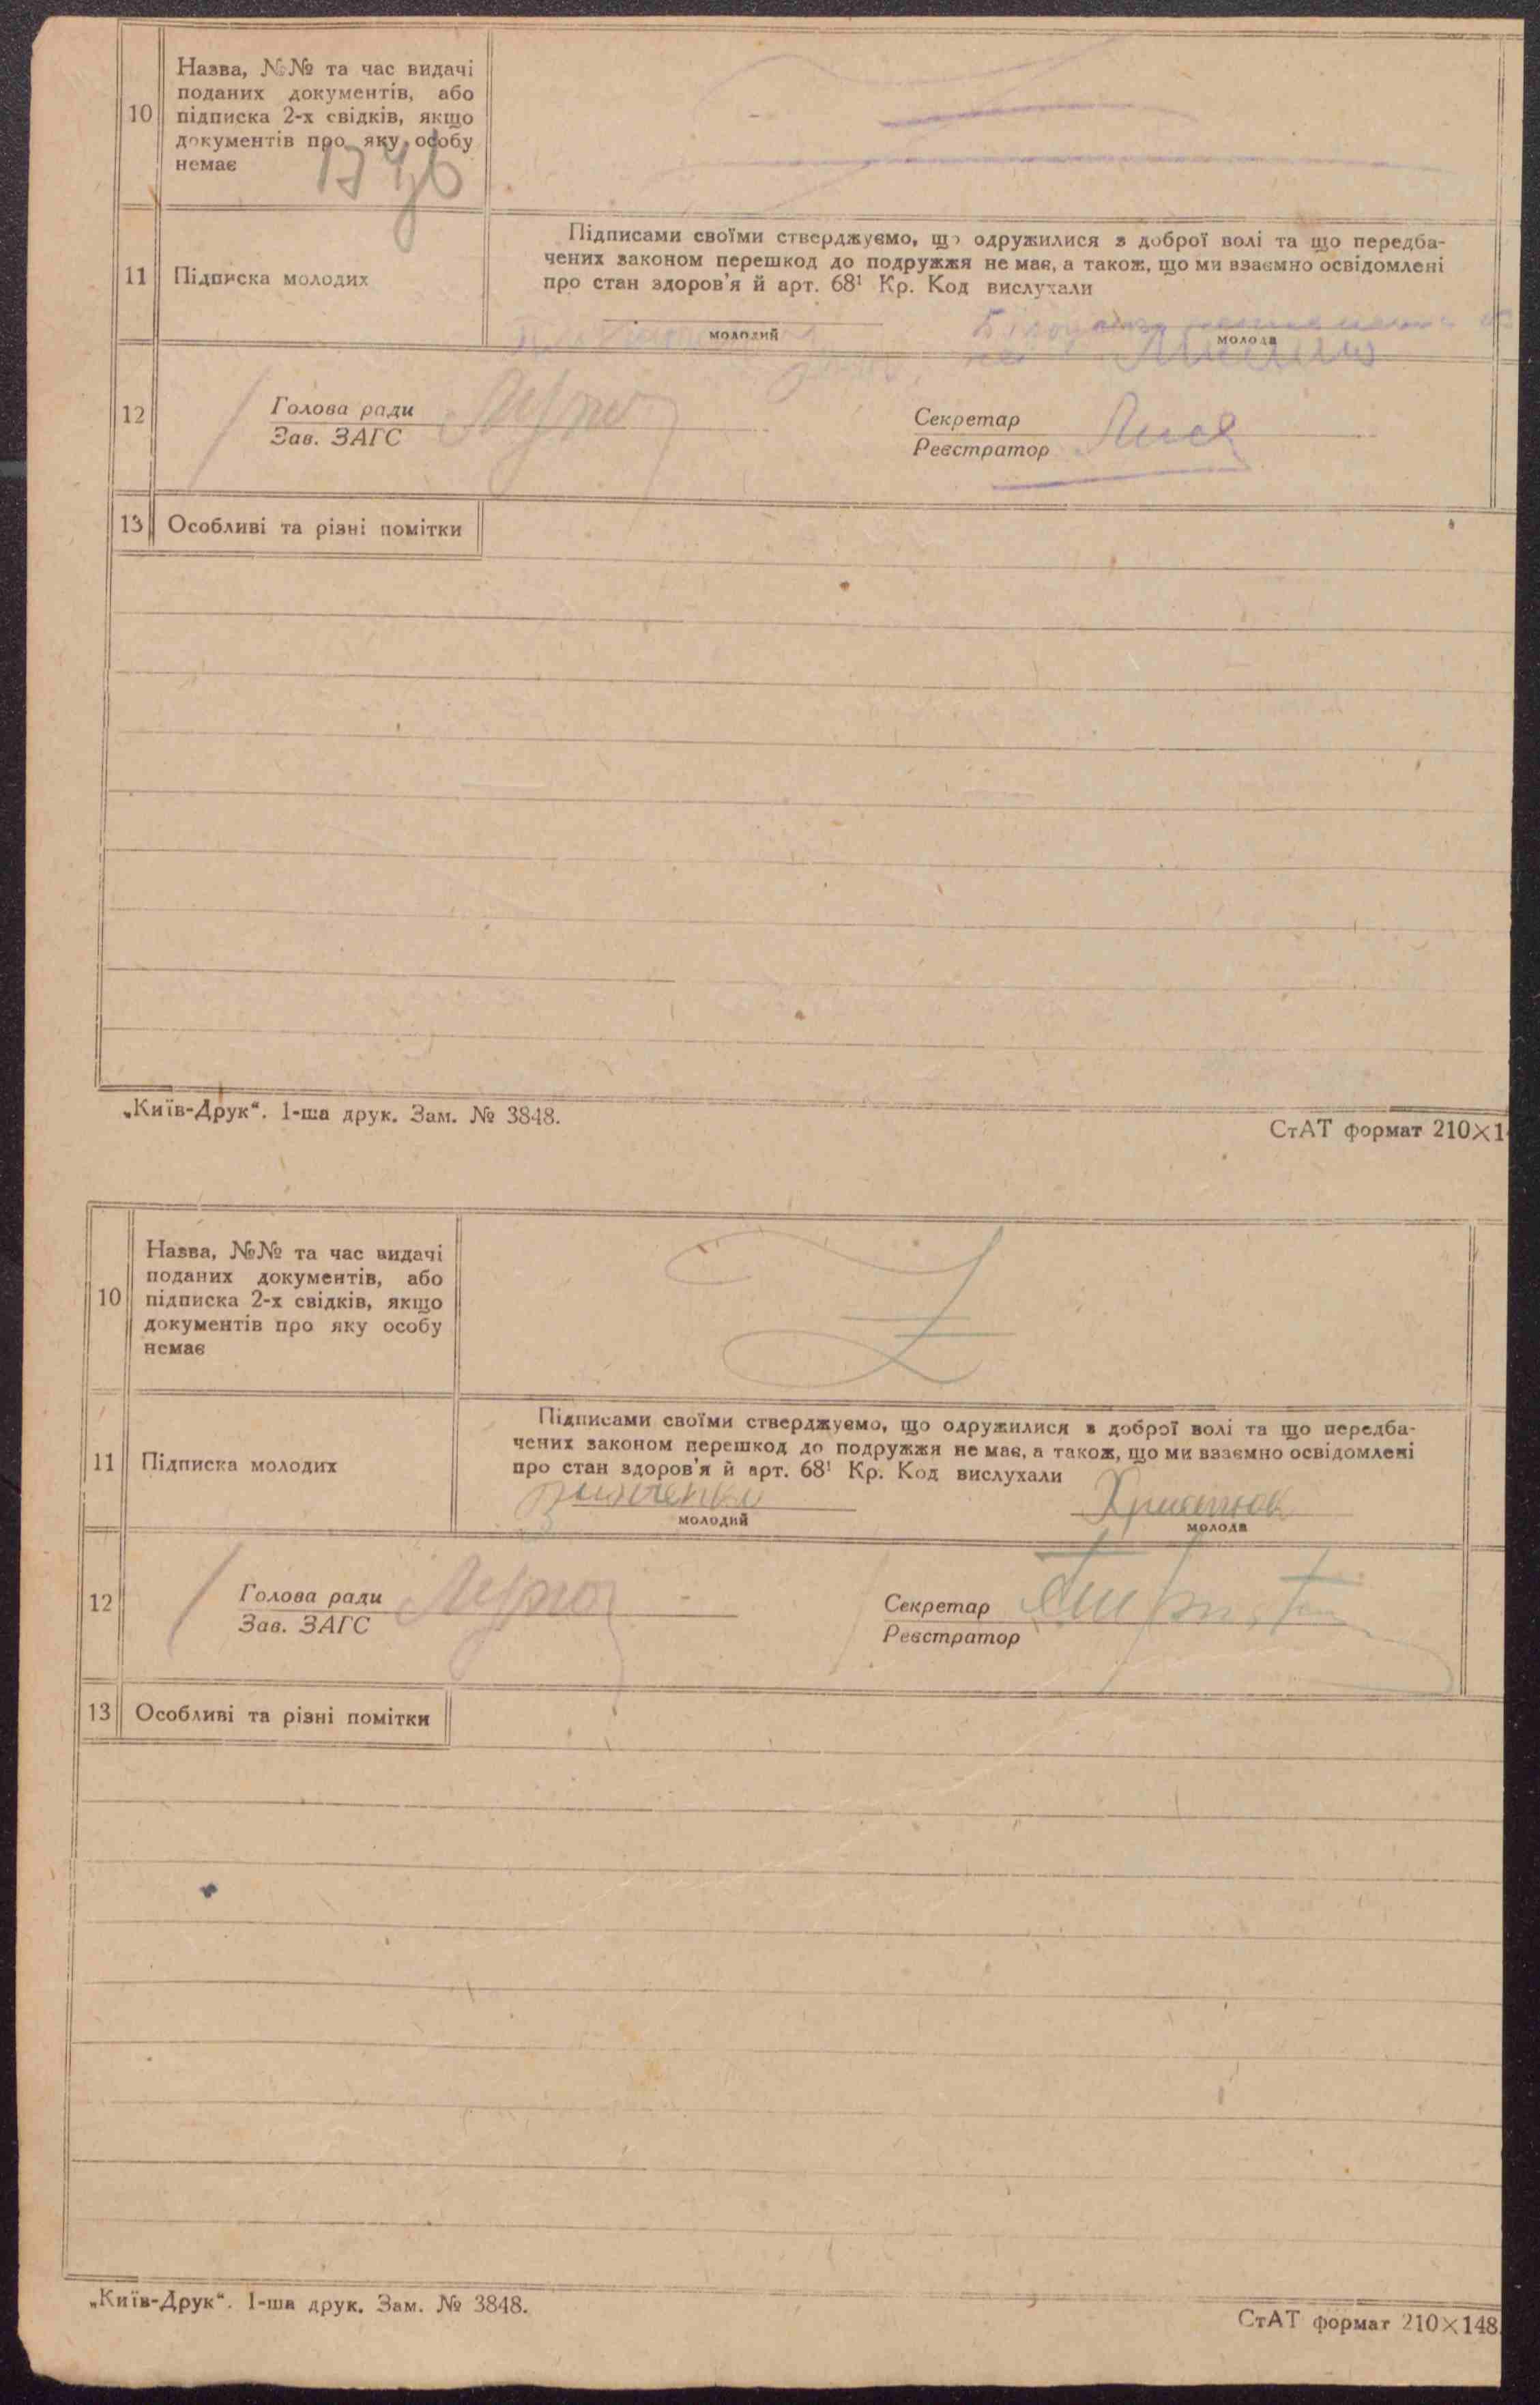 10
Назва, №№ та час видачі
поданих документів, або
підписка 2-х свідків, якщо
документів про яку особу
немає
11
Підписка молодих
Підписами своїми стверджуємо, що одружилися з доброї волі та що передба-
чених законом перешкод до подружжя не має, а також, що ми взаємно освідомлені
про стан здоров'я й арт. 68¹ Кр. Код вислухали
молодий
молода
12
Голова ради
Зав. ЗАГС
Секретар
Реєстратор
13
Особливі та різні помітки
„Київ-Друк“. 1-ша друк. Зам. № 3848.
СтАТ формат 210×1
10
Назва, №№ та час видачі
поданих документів, або
підписка 2-х свідків, якщо
документів про яку особу
немає
11
Підписка молодих
Підписами своїми стверджуємо, що одружилися з доброї волі та що передба-
чених законом перешкод до подружжя не має, а також, що ми взаємно освідомлені
про стан здоров'я й арт. 68¹ Кр. Код вислухали
молодий
молода
12
Голова ради
Зав. ЗАГС
Секретар
Реєстратор
13
Особливі та різні помітки
„Київ-Друк“. 1-ша друк. Зам. № 3848.
СтАТ формат 210×148.